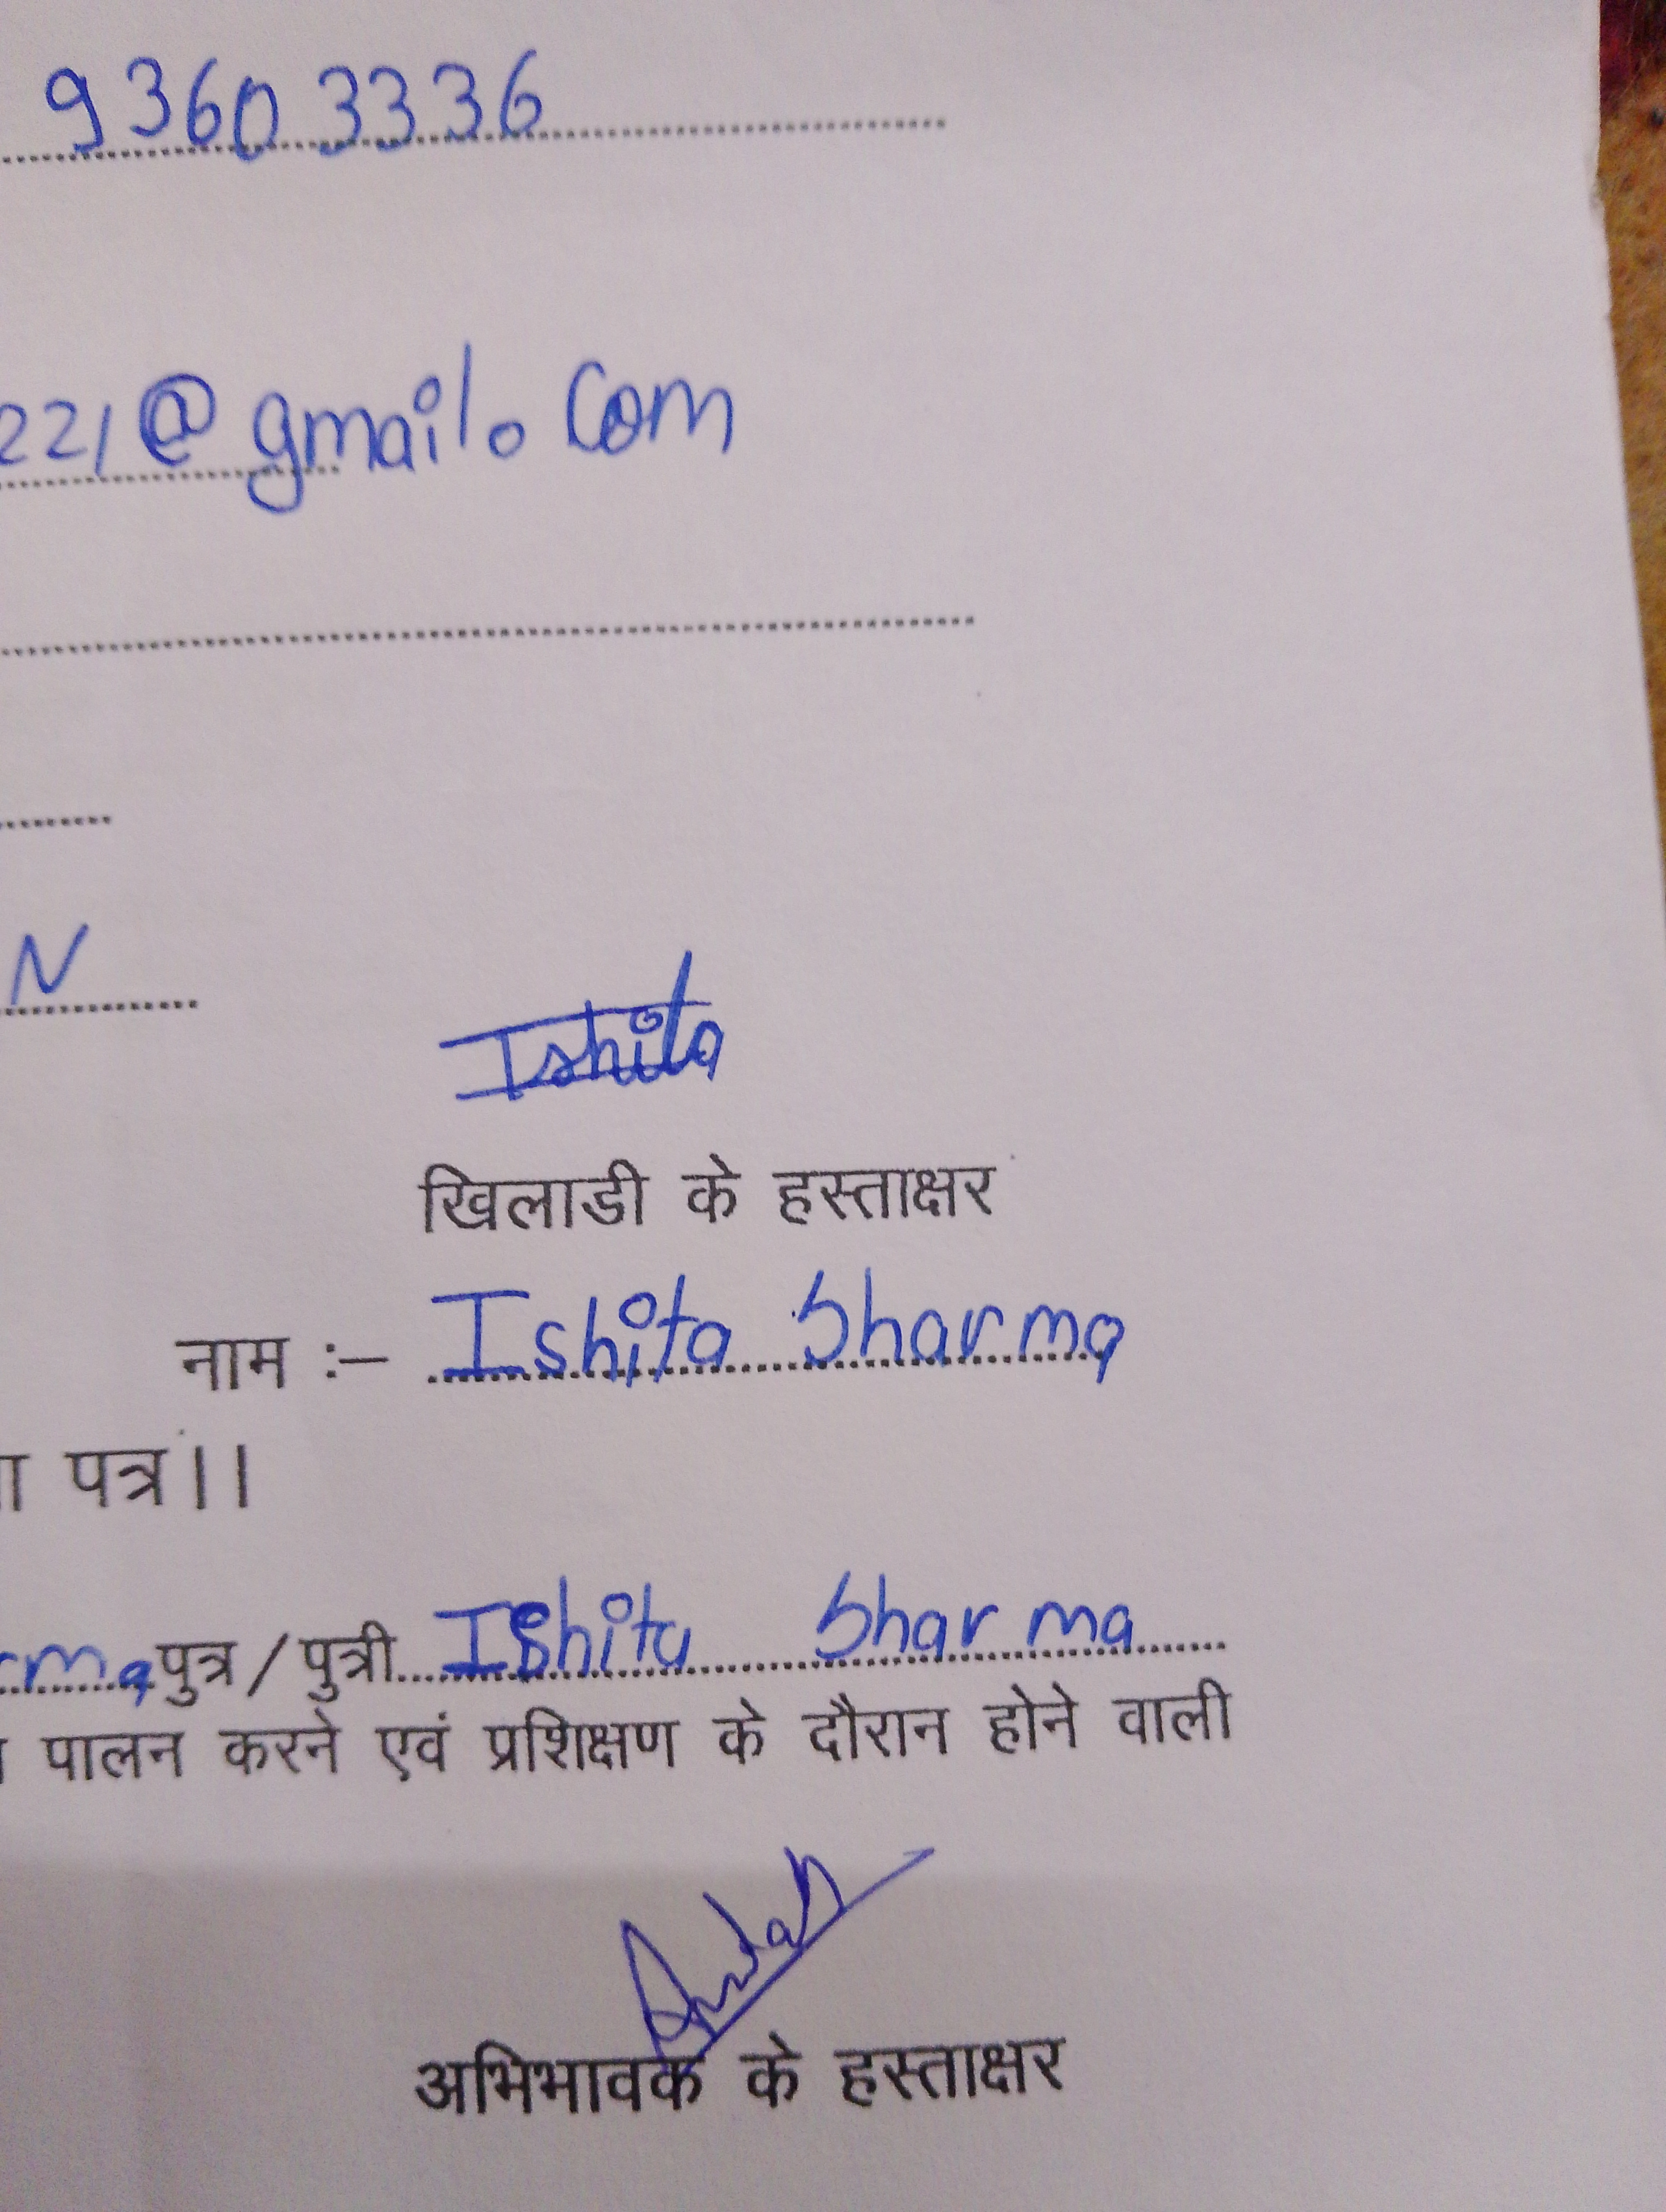 9360 3336
221@gmail.com
N
Ishita
खिलाडी के हस्ताक्षर
नाम :– Ishita Sharma
पत्र।।
rma पुत्र / पुत्री Ishita Sharma
पालन करने एवं प्रशिक्षण के दौरान होने वाली
अभिभावक के हस्ताक्षर